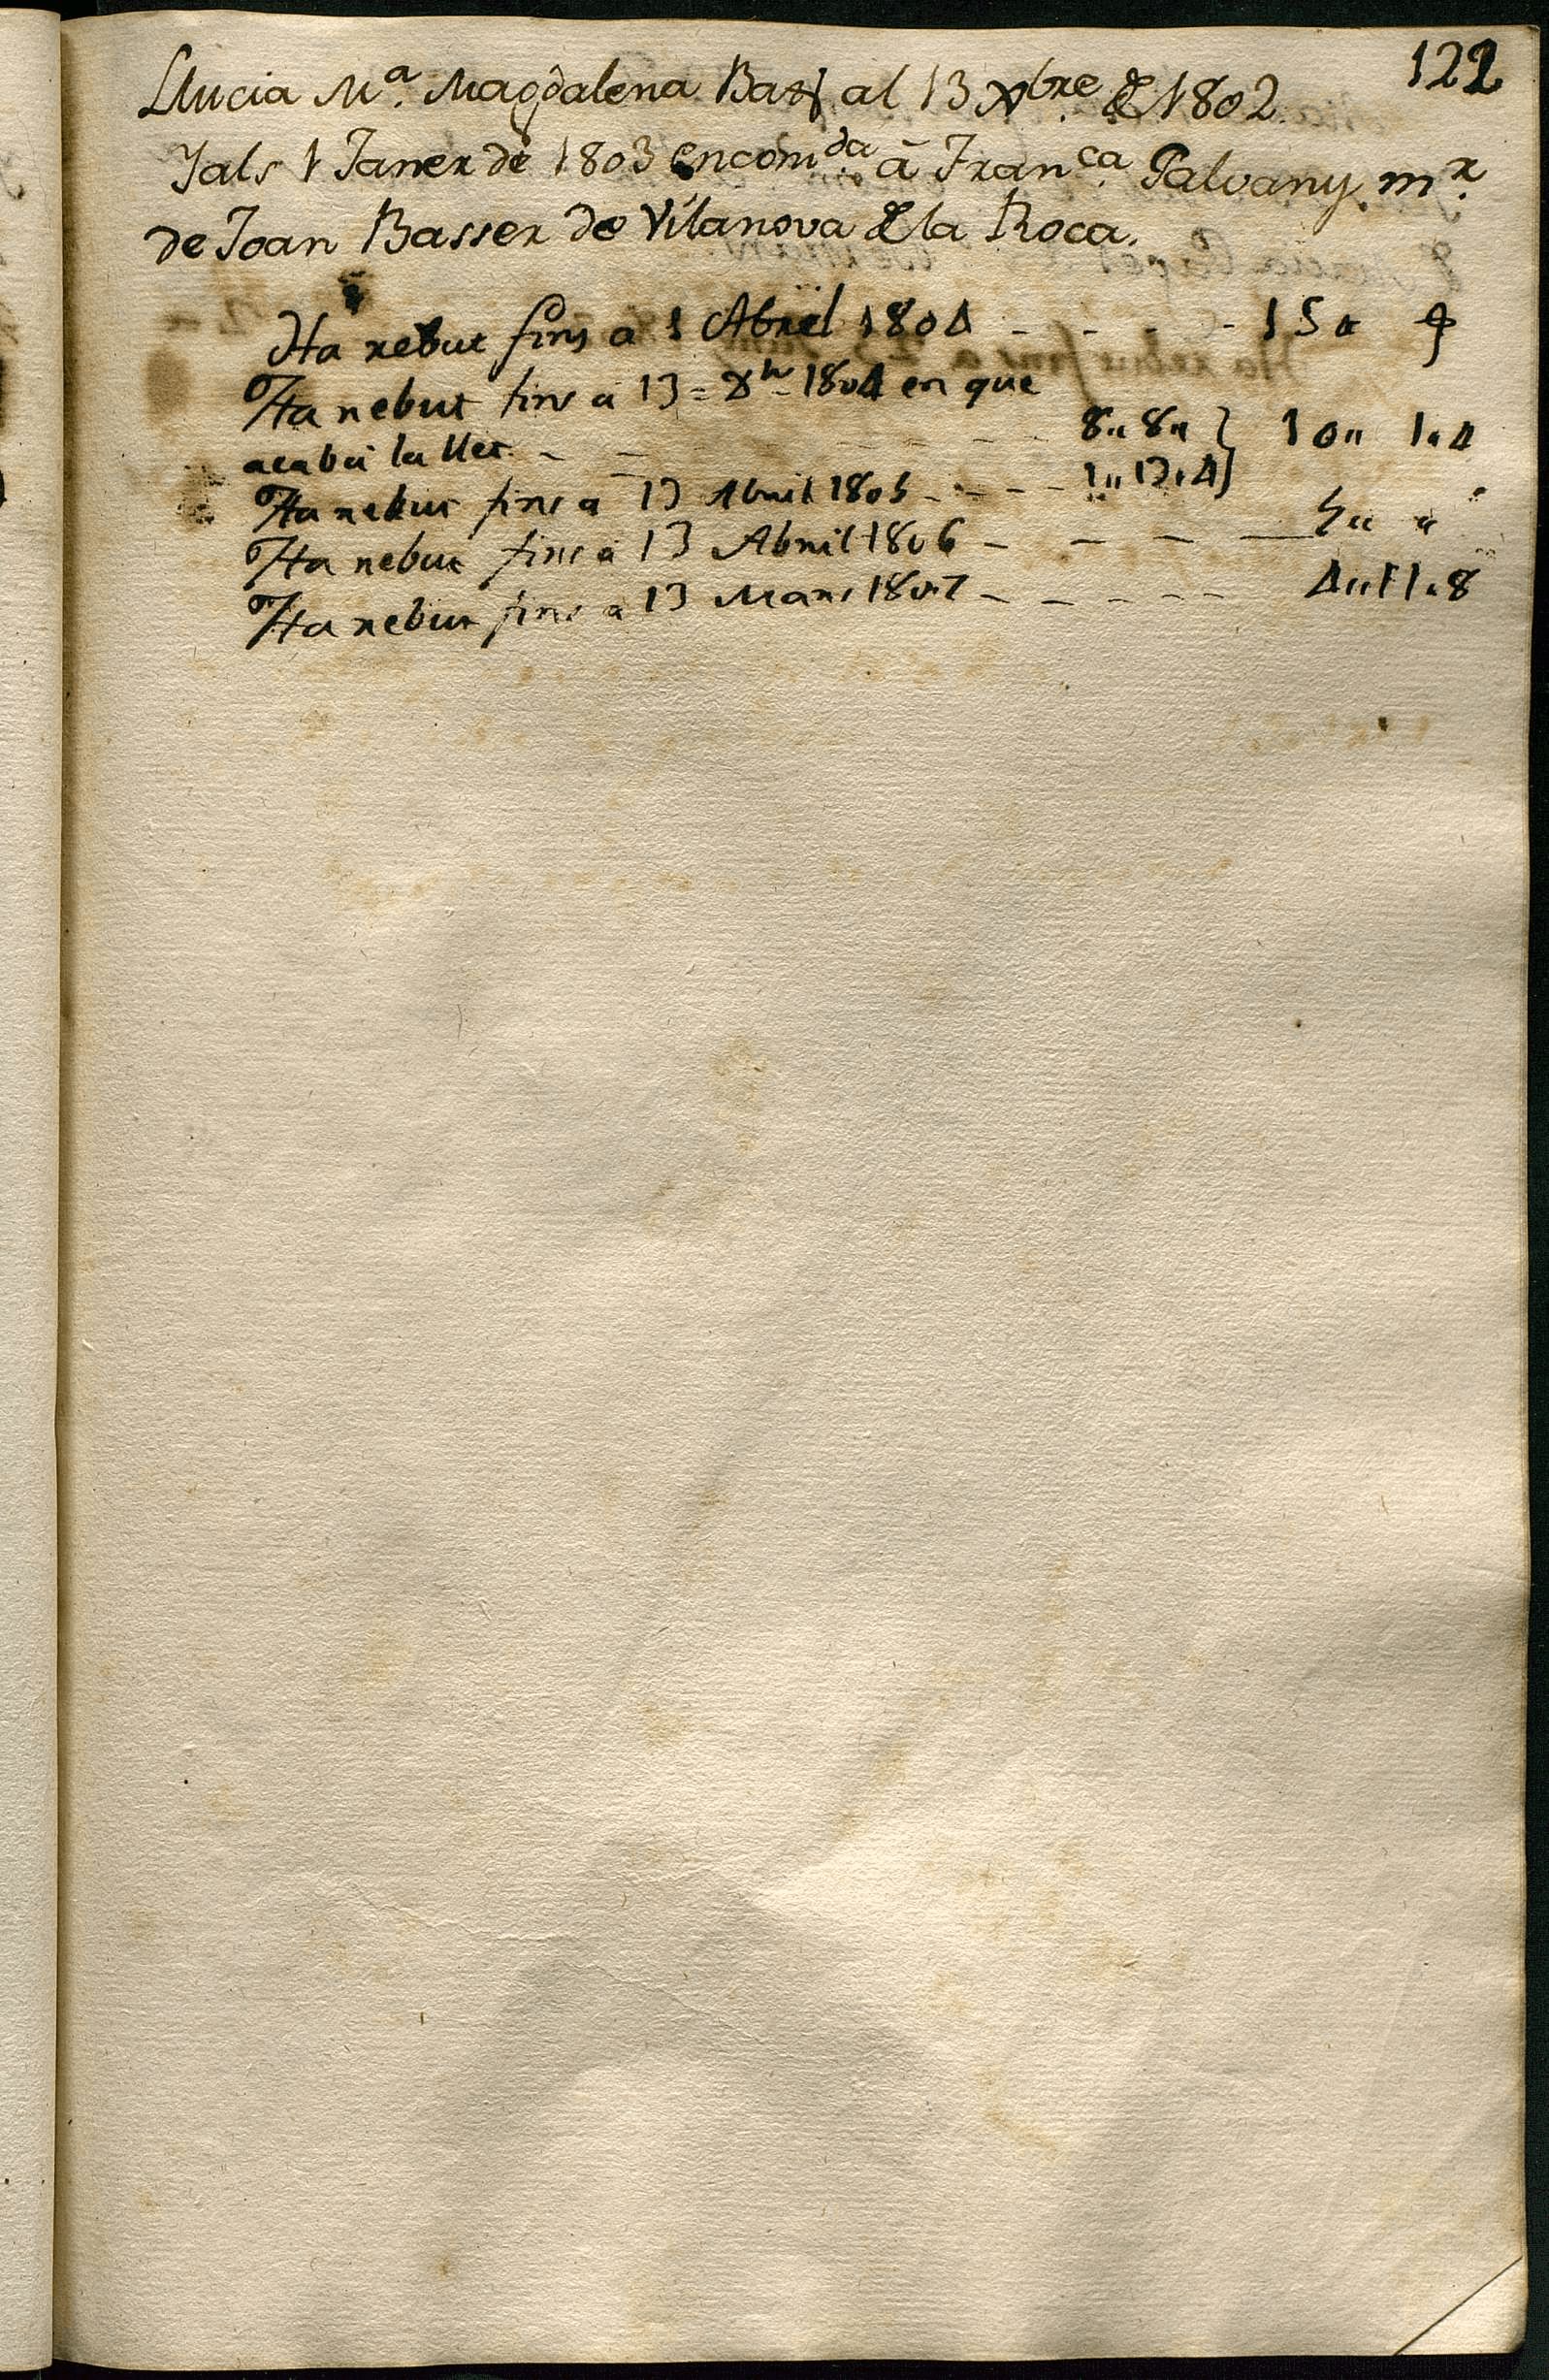 122
Llucia M.ª Magdalena Batj. al 13 Xbre. de 1802.
Y als 1 Janer de 1803 encom.da à Fran.ca Galvany m.r
de Joan Basser de Vilanova de la Roca.
Ha rebut fins a 1 Abril 1804 - - - - 15 "
Ha rebut fins a 13 = Xbr - 1804 en que
acabá la llet - - - - - 8 " 8 " } 10 " 1 " 4
Ha rebut fins a 13 Abril 1805 - - - - 1 " 13 " 4 }
Ha rebut fins a 13 Abril 1806 - - - - 5 " "
Ha rebut fins a 13 Mars 1807 - - - - - 4 " 11 " 8